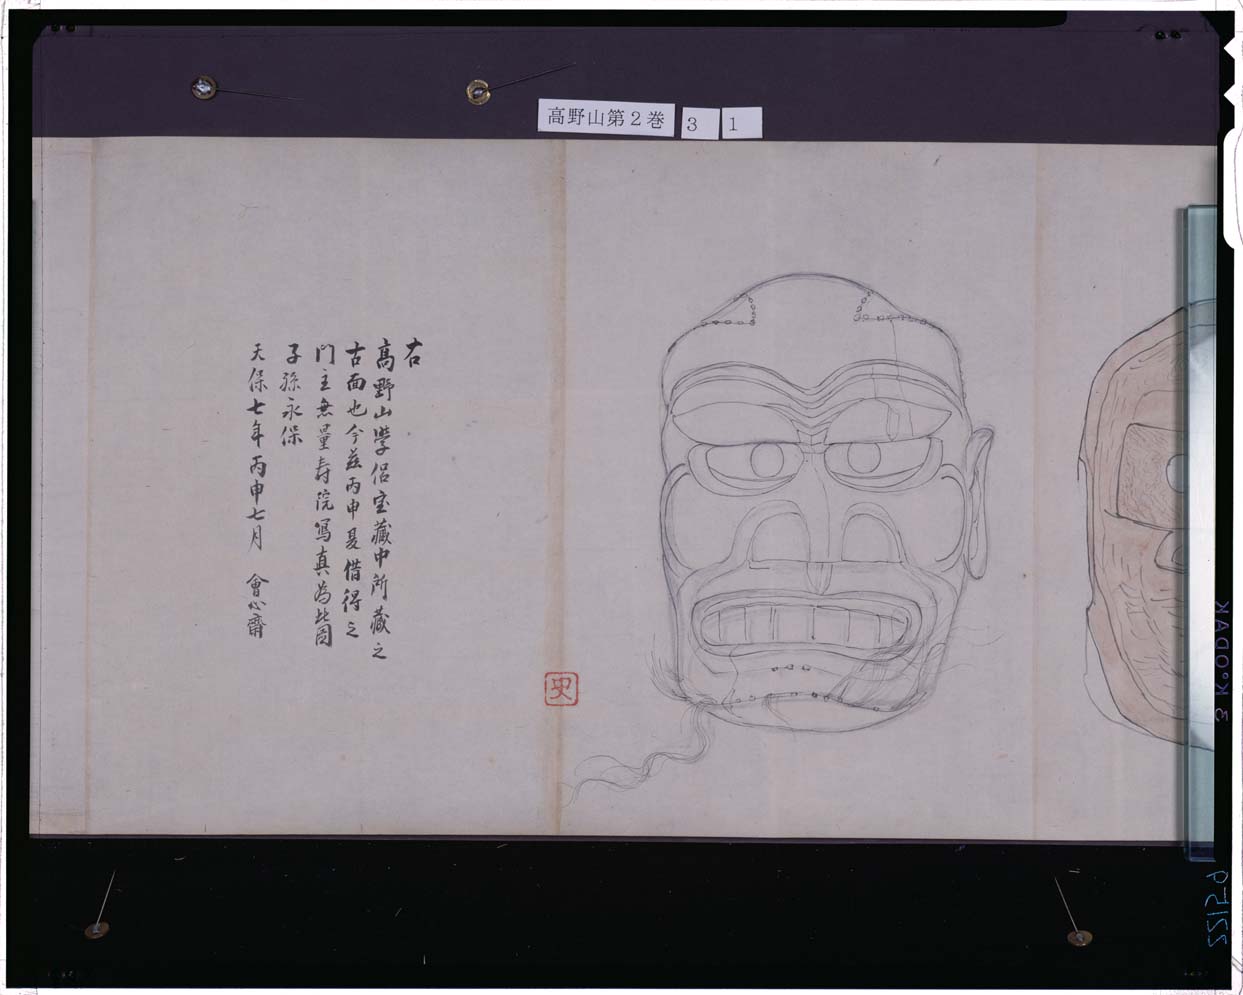 高野山第2巻 3 1
右
高野山學侶宝藏中所藏之
古面也今茲丙申夏借得之
門主無量寿院写真為此図
子孫永保
天保七年丙申七月 會心齋
史
KODAK